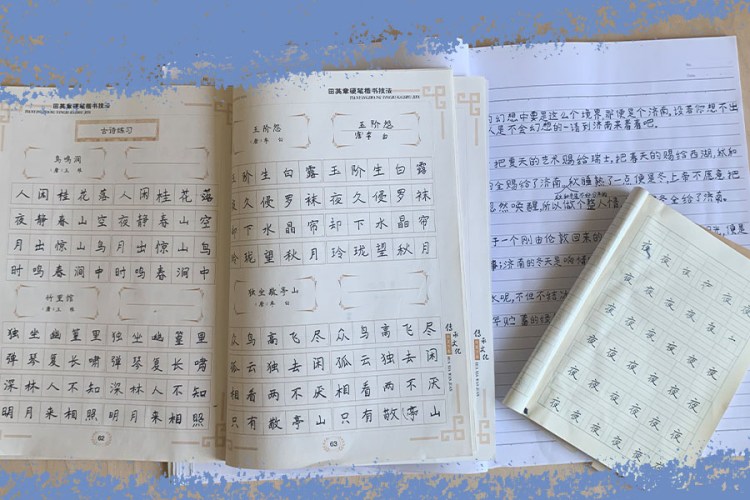 田英章硬笔楷书技法
古诗练习
鸟鸣涧
·唐·王维
人闲桂花落人闲桂花落
夜静春山空夜静春山空
月出惊山鸟月出惊山鸟
时鸣春涧中时鸣春涧中
竹里馆
·唐·王维
独坐幽篁里独坐幽篁里
弹琴复长啸弹琴复长啸
深林人不知深林人不知
明月来相照明月来相照
62
田英章硬笔楷书技法
玉阶怨 玉阶怨
·唐·李白 唐李白
玉阶生白露玉阶生白露
夜久侵罗袜夜久侵罗袜
却下水晶帘却下水晶帘
玲珑望秋月玲珑望秋月
独坐敬亭山
·唐·李白
众鸟高飞尽众鸟高飞尽
孤云独去闲孤云独去闲
相看两不厌相看两不厌
只有敬亭山只有敬亭山
63
传承文化
传承文化
的幻想中要是这么个境界,那便是个济南,设若你想不出
人是不会幻想的-请到济南来看看吧。
把夏天的艺术赐给瑞士,把春天的赐给西湖,秋和
的全赐给了济南。秋睡熟了一点便是冬,上帝不愿意把
忽然唤醒,所以做个整人情,全给了济南。
于一个刚由伦敦回来的
事;济南的冬天是响晴
水呢,不但不结
年贮蓄的绿
夜夜夜夜
夜夜夜夜夜
夜夜夜夜夜
夜夜夜夜夜
夜夜夜夜夜
夜夜夜夜夜
夜夜夜夜夜